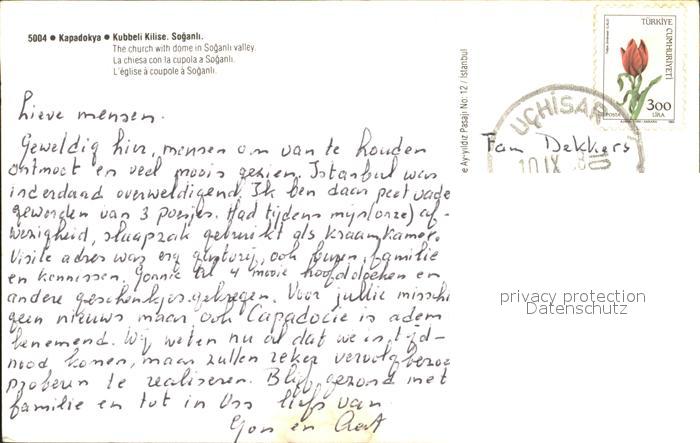 5004 ● Kapadokya ● Kubbeli Kilise. Soğanlı.
The church with dome in Soğanlı valley.
La chiesa con la cupola a Soğanlı.
L'église à coupole à Soğanlı.
e Ay-yıldız Pasajı No: 12 / İstanbul
TÜRKİYE
CUMHURİYETİ
POSTA
300
LİRA
UÇHİSAR
10 IX
Fam Dekkers
privacy protection
Datenschutz
Lieve mensen.
Geweldig hier, mensen om van te houden
ontmoet en veel moois gezien. Istanbul was
inderdaad overweldigend. Ik ben daar peet vade
geworden van 3 poesjes. Had tijdens mijn (onze) af-
wezigheid, slaapzak gebruikt als kraamkamer.
Visite adres was erg gastvrij, ook buren, familie
en kennissen. Gonnie al 4 mooie hoofddoeken en
andere geschenkjes gekregen. Voor jullie misschi
geen nieuws maar ook Capadocie is adem
benemend. Wij weten nu al dat we in tijd-
nood komen, maar zullen zeker vervolgbezoe
proberen te realiseren. Blijf gezond met
familie en tot in Oss liefs van
Gon en Aat